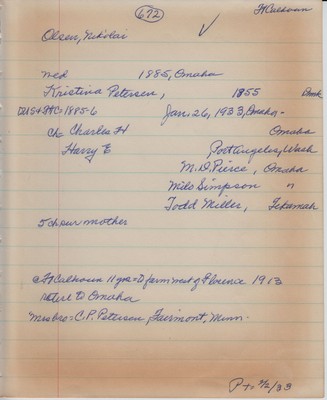 672
Ft Calhoun
Olsen, Nikolai
wed 1885, Omaha
Kristina Petersen, 1855 Denmk
Jan. 26, 1933, Omaha -
Ch Charles H Omaha
Harry E Port Angeles, Wash
M. D. Pierce, Omaha
Milo Simpson "
Todd Miller, Tekamah
5 ch sur mother
Ft Calhoun 11 yrs = to farm west of Florence 1913
retire to Omaha
Mrs bro = C. P. Petersen Fairmont, Minn.
P + 2/2/33